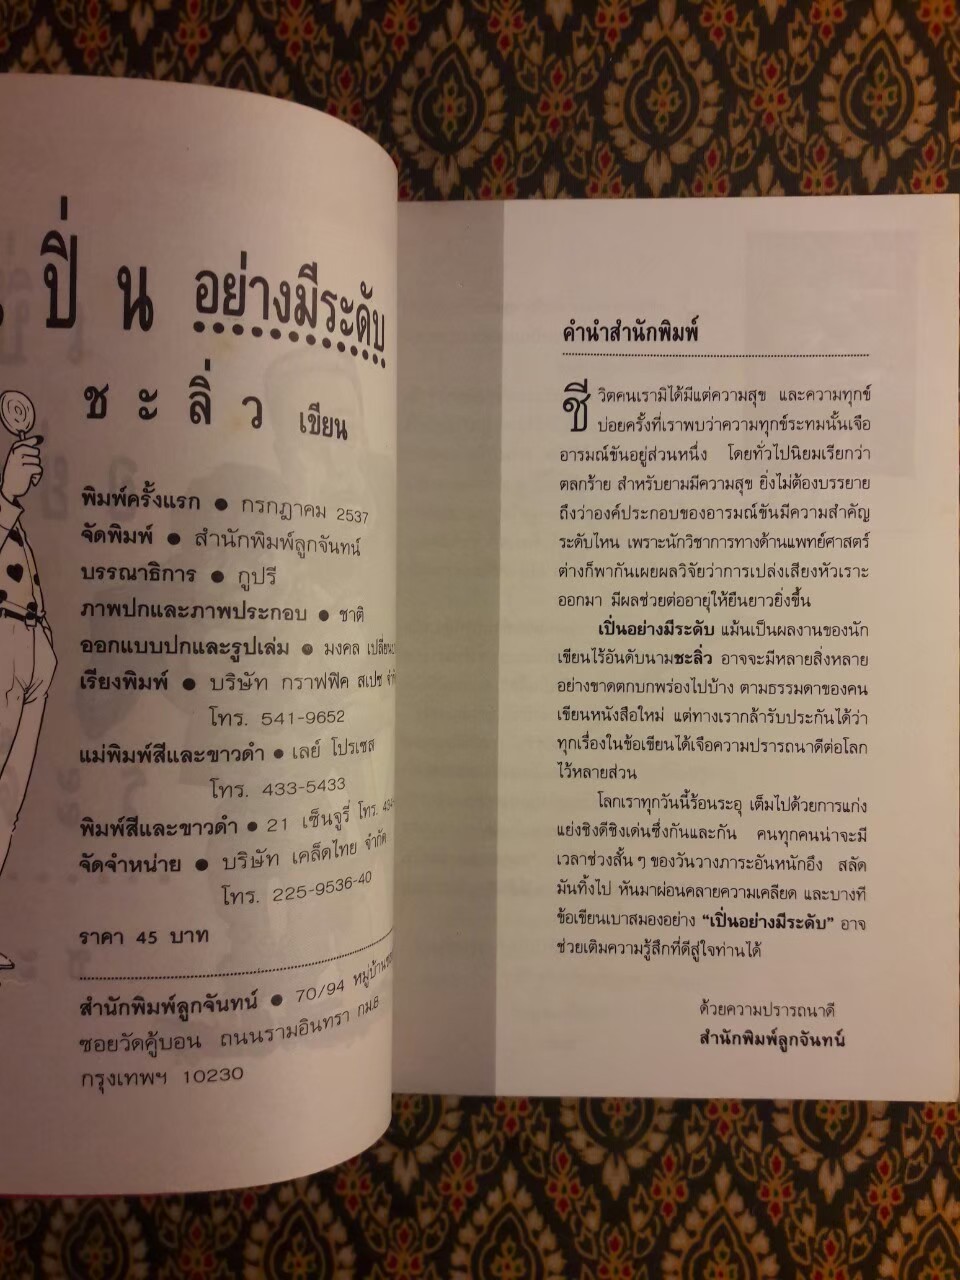 ปิ่น อย่างมีระดับ
ชะลิ่ว เขียน
พิมพ์ครั้งแรก ● กรกฎาคม 2537
จัดพิมพ์ ● สำนักพิมพ์ลูกจันทน์
บรรณาธิการ ● กูปรี
ภาพปกและภาพประกอบ ● ชาติ
ออกแบบปกและรูปเล่ม ● มงคล
เรียงพิมพ์ ● บริษัท กราฟฟิค สเปซ
โทร. 541-9652
แม่พิมพ์สีและขาวดำ ● เลย์ โปรเซส
โทร. 433-5433
พิมพ์สีและขาวดำ ● 21 เซ็นจูรี่ โทร.
จัดจำหน่าย ● บริษัท เคล็ดไทย จำกัด
โทร. 225-9536-40
ราคา 45 บาท
สำนักพิมพ์ลูกจันทน์ ● 70/94
ซอยวัดคู้บอน ถนนรามอินทรา กม.8
กรุงเทพฯ 10230
คำนำสำนักพิมพ์
ชีวิตคนเรามิได้มีแต่ความสุข และความทุกข์
บ่อยครั้งที่เราพบว่าความทุกข์ระทมนั้นเจือ
อารมณ์ขันอยู่ส่วนหนึ่ง โดยทั่วไปนิยมเรียกว่า
ตลกร้าย สำหรับยามมีความสุข ยิ่งไม่ต้องบรรยาย
ถึงว่าองค์ประกอบของอารมณ์ขันมีความสำคัญ
ระดับไหน เพราะนักวิชาการทางด้านแพทย์ศาสตร์
ต่างก็พากันเผยผลวิจัยว่าการเปล่งเสียงหัวเราะ
ออกมา มีผลช่วยต่ออายุให้ยืนยาวยิ่งขึ้น
เปิ่นอย่างมีระดับ แม้นเป็นผลงานของนัก
เขียนไร้อันดับนามชะลิ่ว อาจจะมีหลายสิ่งหลาย
อย่างขาดตกบกพร่องไปบ้าง ตามธรรมดาของคน
เขียนหนังสือใหม่ แต่ทางเรากล้ารับประกันได้ว่า
ทุกเรื่องในข้อเขียนได้เจือความปรารถนาดีต่อโลก
ไว้หลายส่วน
โลกเราทุกวันนี้ร้อนระอุ เต็มไปด้วยการแก่ง
แย่งชิงดีชิงเด่นซึ่งกันและกัน คนทุกคนน่าจะมี
เวลาช่วงสั้น ๆ ของวันวางภาระอันหนักอึ้ง สลัด
มันทิ้งไป หันมาผ่อนคลายความเคลียด และบางที
ข้อเขียนเบาสมองอย่าง “เปิ่นอย่างมีระดับ” อาจ
ช่วยเติมความรู้สึกที่ดีสู่ใจท่านได้
ด้วยความปรารถนาดี
สำนักพิมพ์ลูกจันทน์